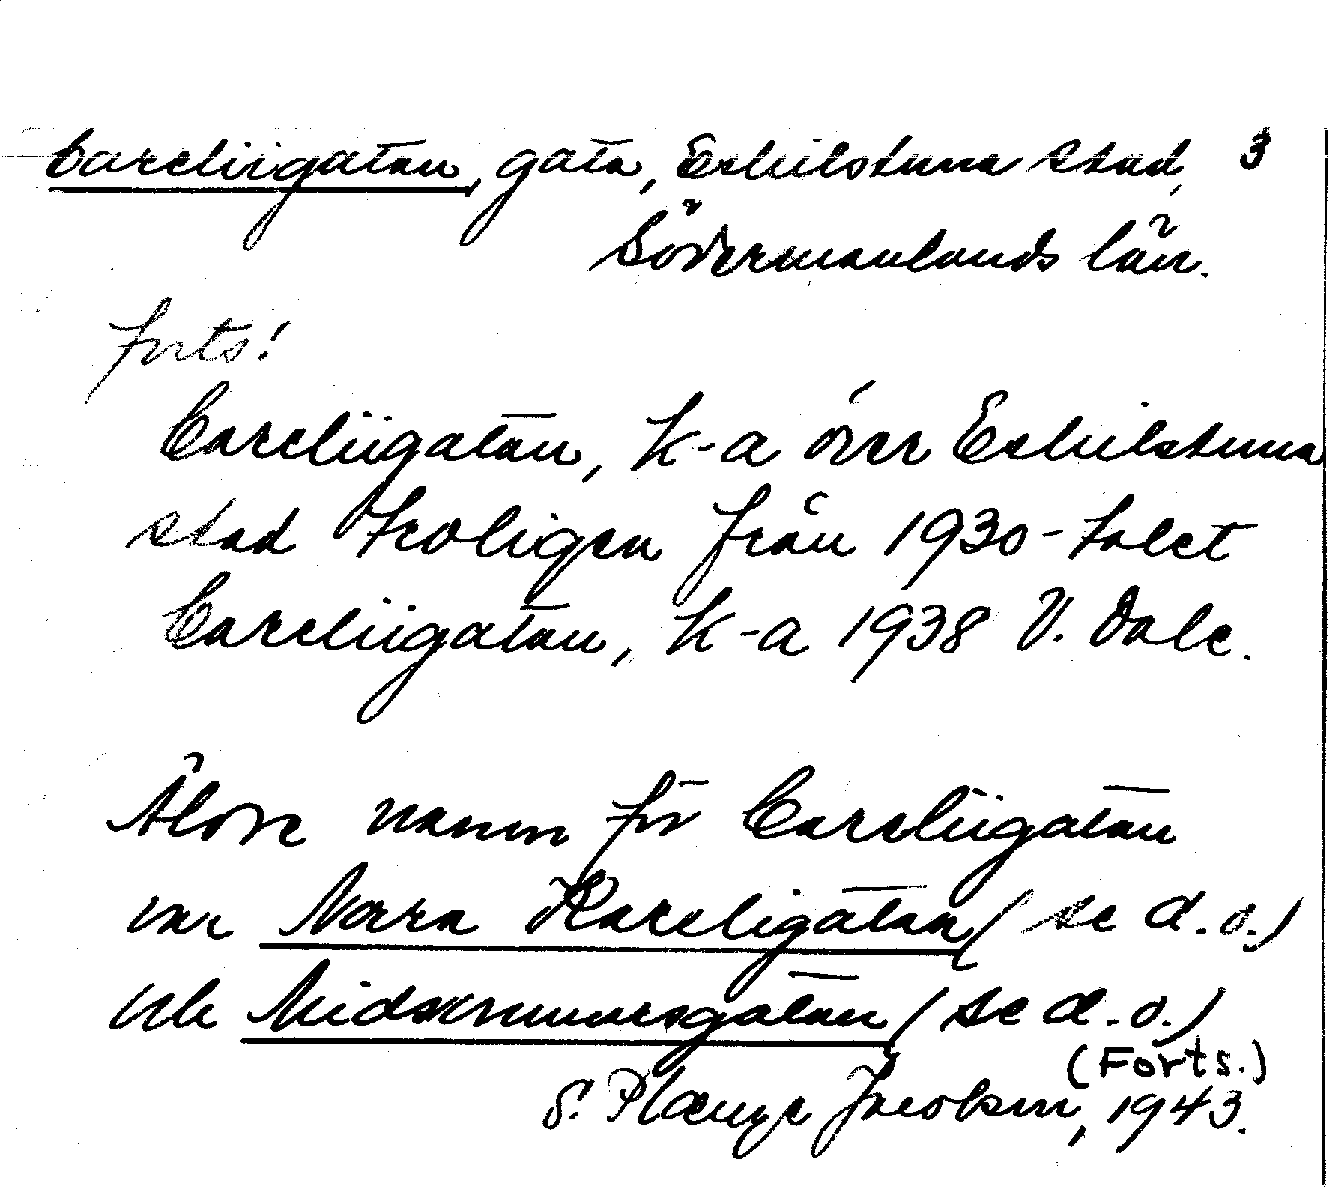 Careliigatan, gata, Eskilstuna stad, 3
Södermanlands län.
Forts!
Careliigatan, K-a över Eskilstuna
stad troligen från 1930-talet
Careliigatan, K-a 1938 V. Dale.
Äldre namn för Careliigatan
var Norra Kareligatan (se d.o.)
och Midsommarsgatan (se d.o.)
(Forts.)
S. Jacobson, 1943.